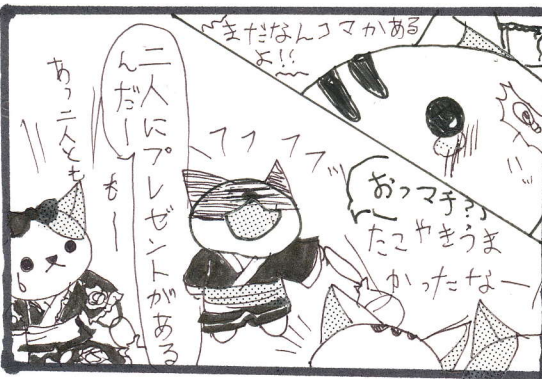 まだなんコマかある
よ!!
おっマチ?
たこやきうま
かったなー
フフ フフッ
二人にプレゼントがある
んだー
もー
あっ二人とも